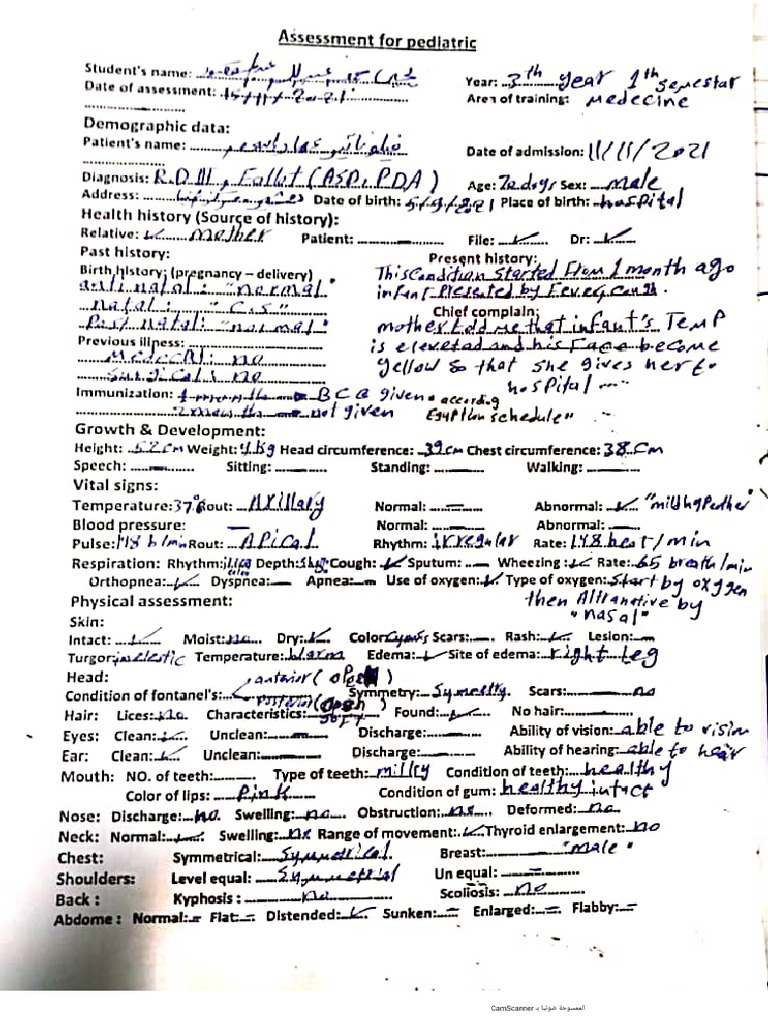 Assessment for pediatric
Student's name:
Year: 3th year 1th semestar
Date of assessment:
Area of training: medecine
Demographic data:
Patient's name:
Date of admission: 11/11/2021
Diagnosis: R.D.III, Fallot (ASD, PDA) Age: 70 days Sex: male
Address: Date of birth: 5/9/2021 Place of birth: hospital
Health history (Source of history):
Relative: ✓ mother Patient: — File: ✓ Dr: ✓
Past history:
Birth history: (pregnancy – delivery)
anti natal: "normal"
natal: "C.S"
Post natal: "normal"
Previous illness:
Medecal: no
Surgical: no
Present history:
This condition started from 1 month ago
infant presented by Fever, cough.
Chief complain:
mother told me that infant's Temp
is eleveted and his Face become
yellow so that she gives her to
hospital ....
Immunization: 1 month → BCG given "according
2 months → not given Egyptian schedule"
Growth & Development:
Height: 52 cm Weight: 4 kg Head circumference: 39 cm Chest circumference: 38 cm
Speech: — Sitting: — Standing: — Walking: —
Vital signs:
Temperature: 37° Rout: Axillary Normal: — Abnormal: ✓
Blood pressure: — Normal: — Abnormal: —
Pulse: 148 b/min Rout: Apical Rhythm: irregular Rate: 148 beat/min
Respiration: Rhythm: Depth: Cough: ✓ Sputum: — Wheezing: ✓ Rate: 65 breath/min
Orthopnea: ✓ Dyspnea: — Apnea: — Use of oxygen: ✓ Type of oxygen: Start by oxygen
then Altranative by
"nasal"
Physical assessment:
Skin:
Intact: ✓ Moist: no Dry: ✓ Color: Scars: — Rash: ✓ Lesion: —
Turgor: inelestic Temperature: warm Edema: ✓ Site of edema: right leg
Head:
Condition of fontanel's: anterior (open) posterior (open) Symmetry: Symetry. Scars: no
Hair: Lices: no Characteristics: soft Found: ✓ No hair: —
Eyes: Clean: ✓ Unclean: — Discharge: — Ability of vision: able to vision
Ear: Clean: ✓ Unclean: — Discharge: — Ability of hearing: able to hear
Mouth: NO. of teeth: — Type of teeth: milky Condition of teeth: healthy
Color of lips: Pink Condition of gum: healthy intact
Nose: Discharge: no Swelling: no Obstruction: no Deformed: no
Neck: Normal: ✓ Swelling: no Range of movement: ✓ Thyroid enlargement: no
Chest: Symmetrical: Symmetrical Breast: "male"
Shoulders: Level equal: Symmetrial Un equal: —
Back : Kyphosis : no Scoliosis: no
Abdome : Normal: — Flat: — Distended: ✓ Sunken: — Enlarged: — Flabby: —
الممسوحة ضوئيا بـ CamScanner